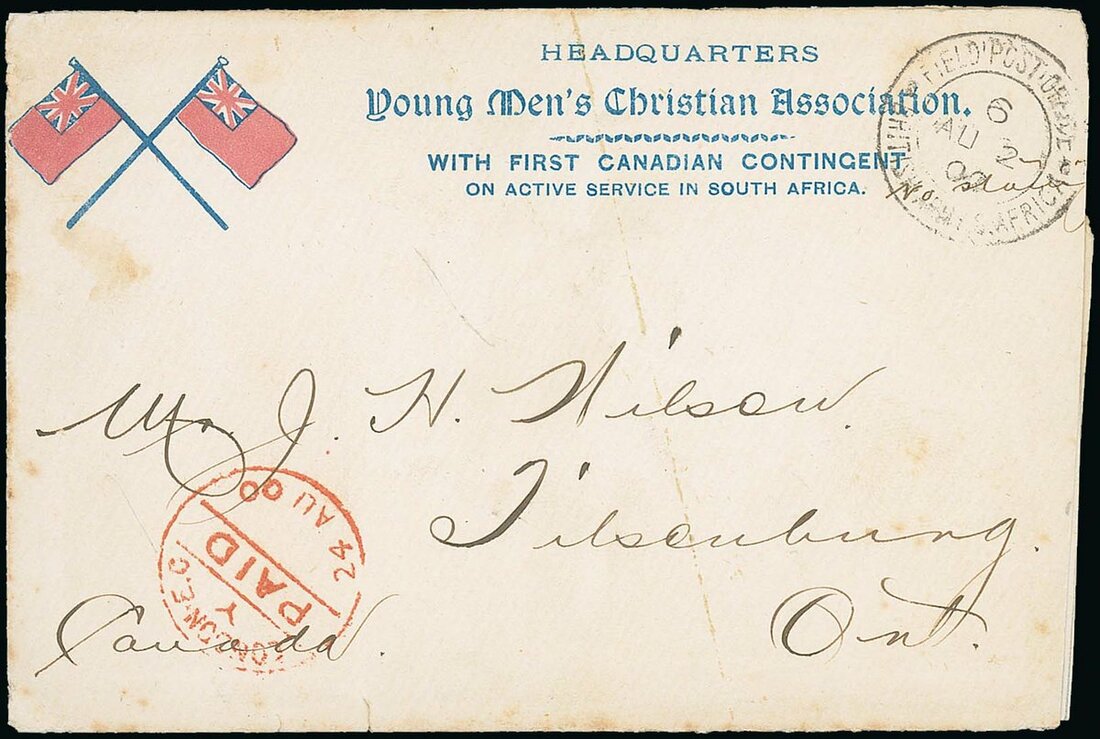 HEADQUARTERS
Young Men's Christian Association.
WITH FIRST CANADIAN CONTINGENT
ON ACTIVE SERVICE IN SOUTH AFRICA.
FIELD POST OFFICE
S. AFRICA
6
AU 2
00
No
Mr. J. H. Wilson.
Tilsenburg.
Ont.
Canada.
LONDON E.C
Y
PAID
24 AU 00